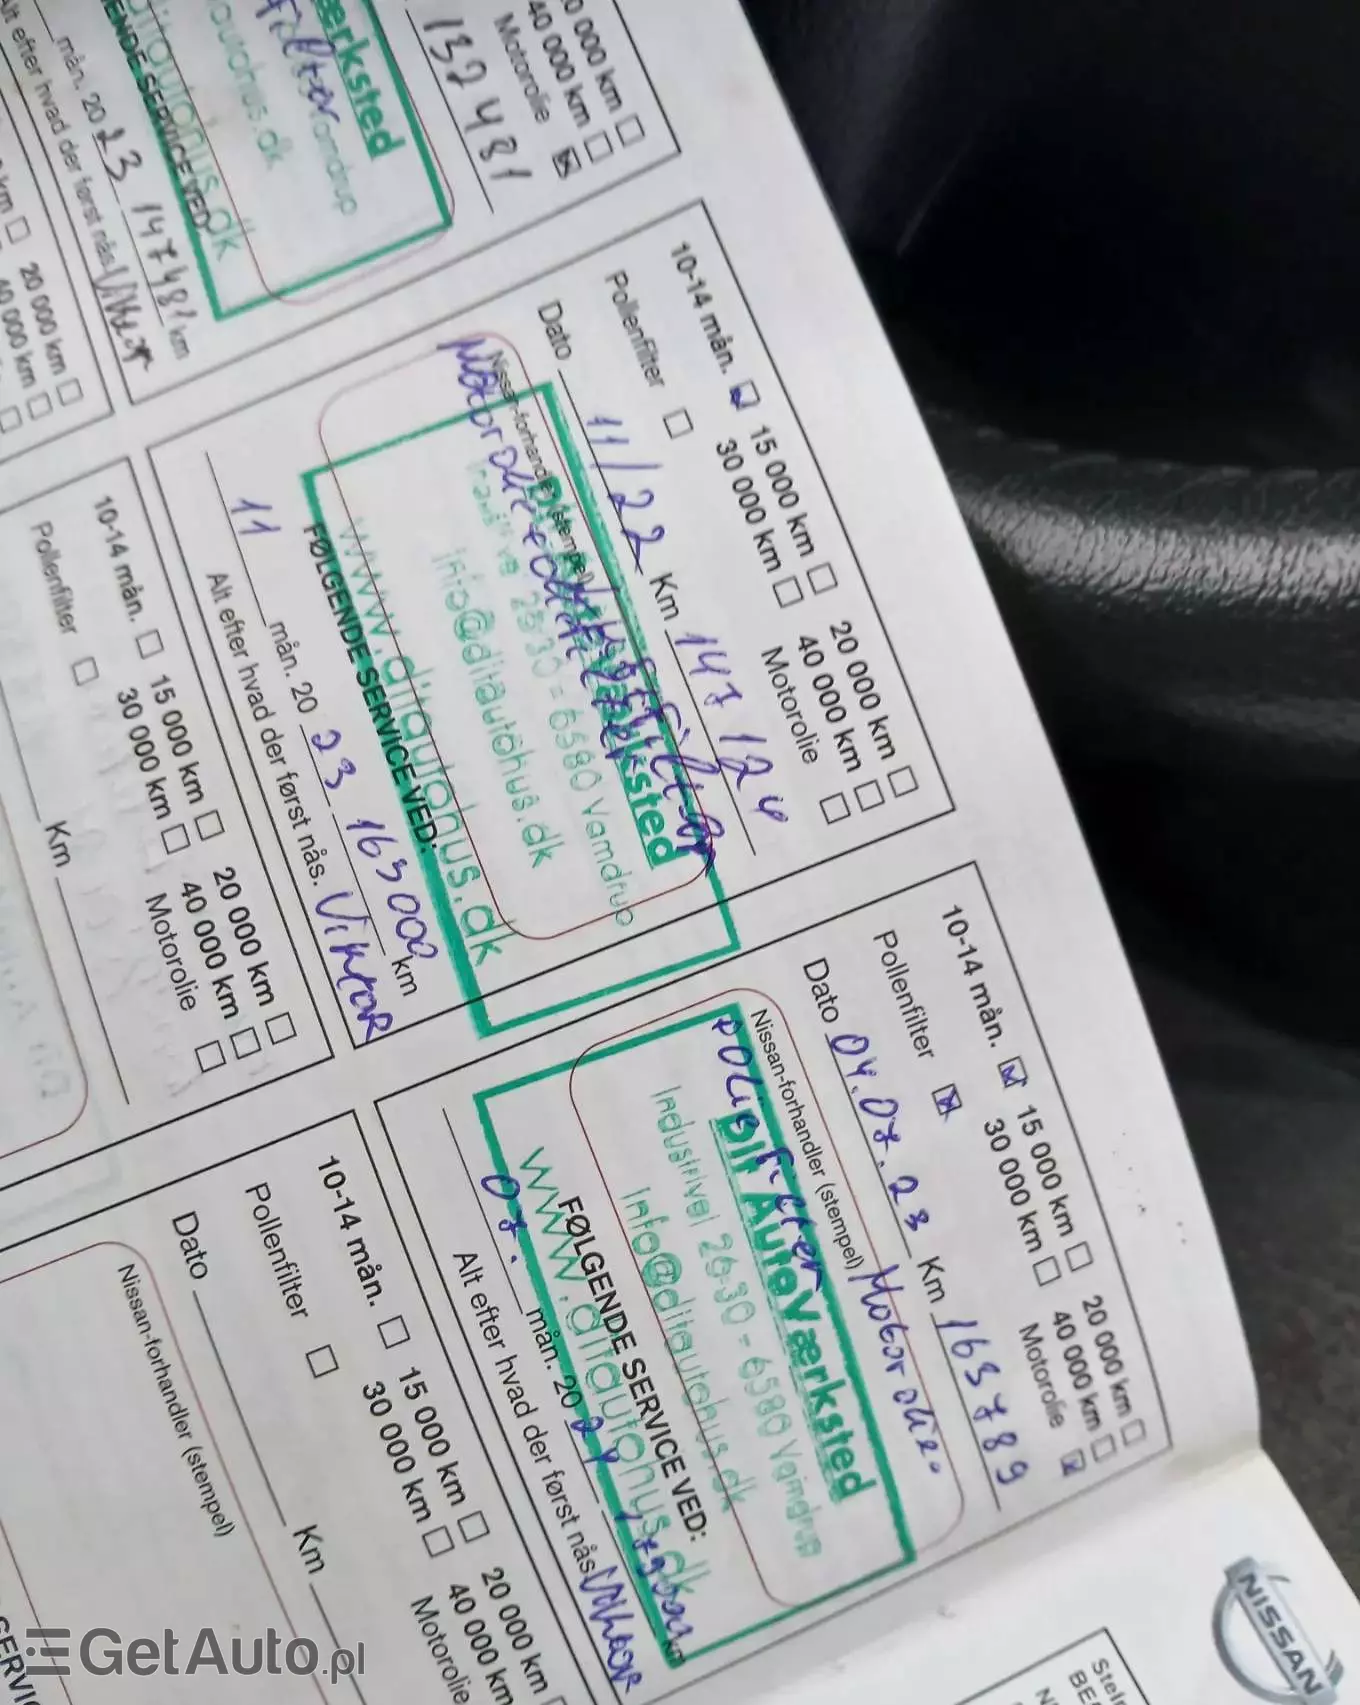 0 000 km
40 000 km
Motorolie
137481
ærksted
Filter
Vamdrup
autohus.dk
ENDE SERVICE VED:
mån. 20 23 147481 km
Alt efter hvad der først nås. Viktor
20 000 km
40 000 km
10-14 mån. 15 000 km 20 000 km
30 000 km 40 000 km
Pollenfilter Motorolie
Dato 11/22 Km 147124
Nissan-forhandler (stempel)
Motorolie + oliefilter
Værksted
26-30 - 6580 Vamdrup
info@ditautohus.dk
www.ditautohus.dk
FØLGENDE SERVICE VED:
11 mån. 20 23 163000 km
Alt efter hvad der først nås. Viktor
10-14 mån. 15 000 km 20 000 km
30 000 km 40 000 km
Pollenfilter Motorolie
Dato 04.07.23 Km 163789
Nissan-forhandler (stempel) Motorolie.
Dit AutoVærksted
Industrivej 26-30 - 6580 Vamdrup
info@ditautohus.dk
www.ditautohus.dk
FØLGENDE SERVICE VED:
07. mån. 20 24 km
Alt efter hvad der først nås. Viktor
10-14 mån. 15 000 km 20 000 km
30 000 km 40 000 km
Pollenfilter Motorolie
Km
10-14 mån. 15 000 km 20 000 km
30 000 km 40 000 km
Pollenfilter Motorolie
Dato Km
Nissan-forhandler (stempel)
NISSAN
GetAuto.pl